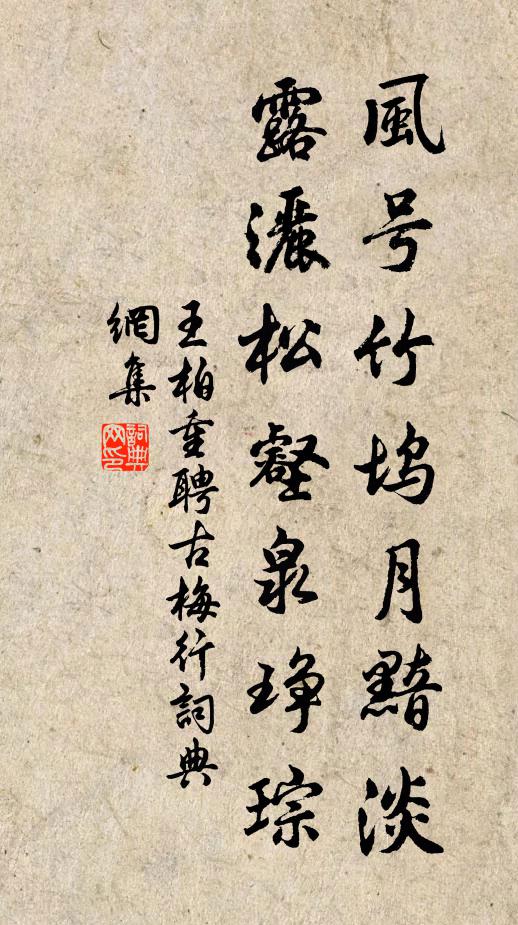 風号竹塢月黯淡
露灑松壑泉琤琮
王柏重聘古梅行詞典
網集
詞典網印